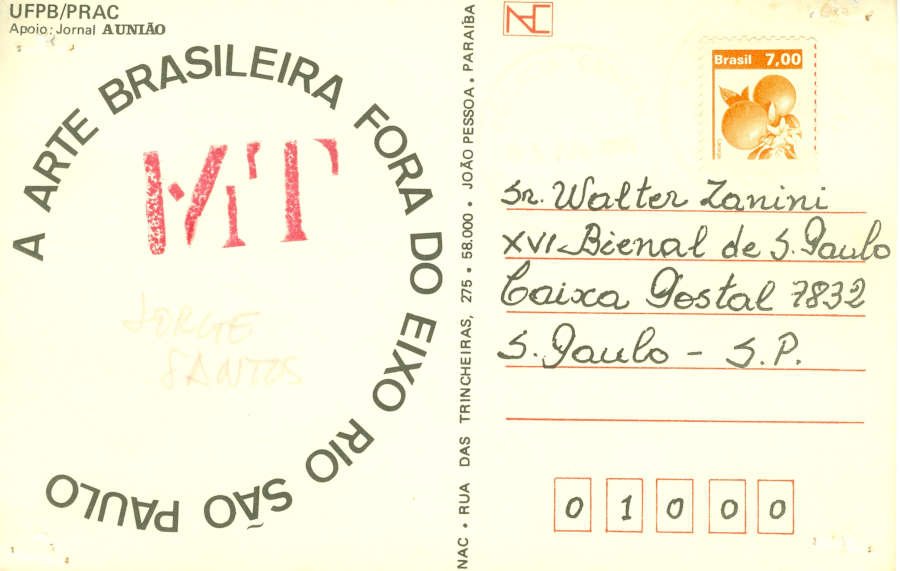 UFPB/PRAC
Apoio: Jornal A UNIÃO
A ARTE BRASILEIRA FORA DO EIXO RIO SÃO PAULO
MT
JORGE
SANTOS
NAC • RUA DAS TRINCHEIRAS, 275 • 58.000 • JOÃO PESSOA • PARAÍBA
NAC
Brasil 7,00
Sr. Walter Zanini
XVI Bienal de S. Paulo
Caixa Postal 7832
S. Paulo - S.P.
0 1 0 0 0